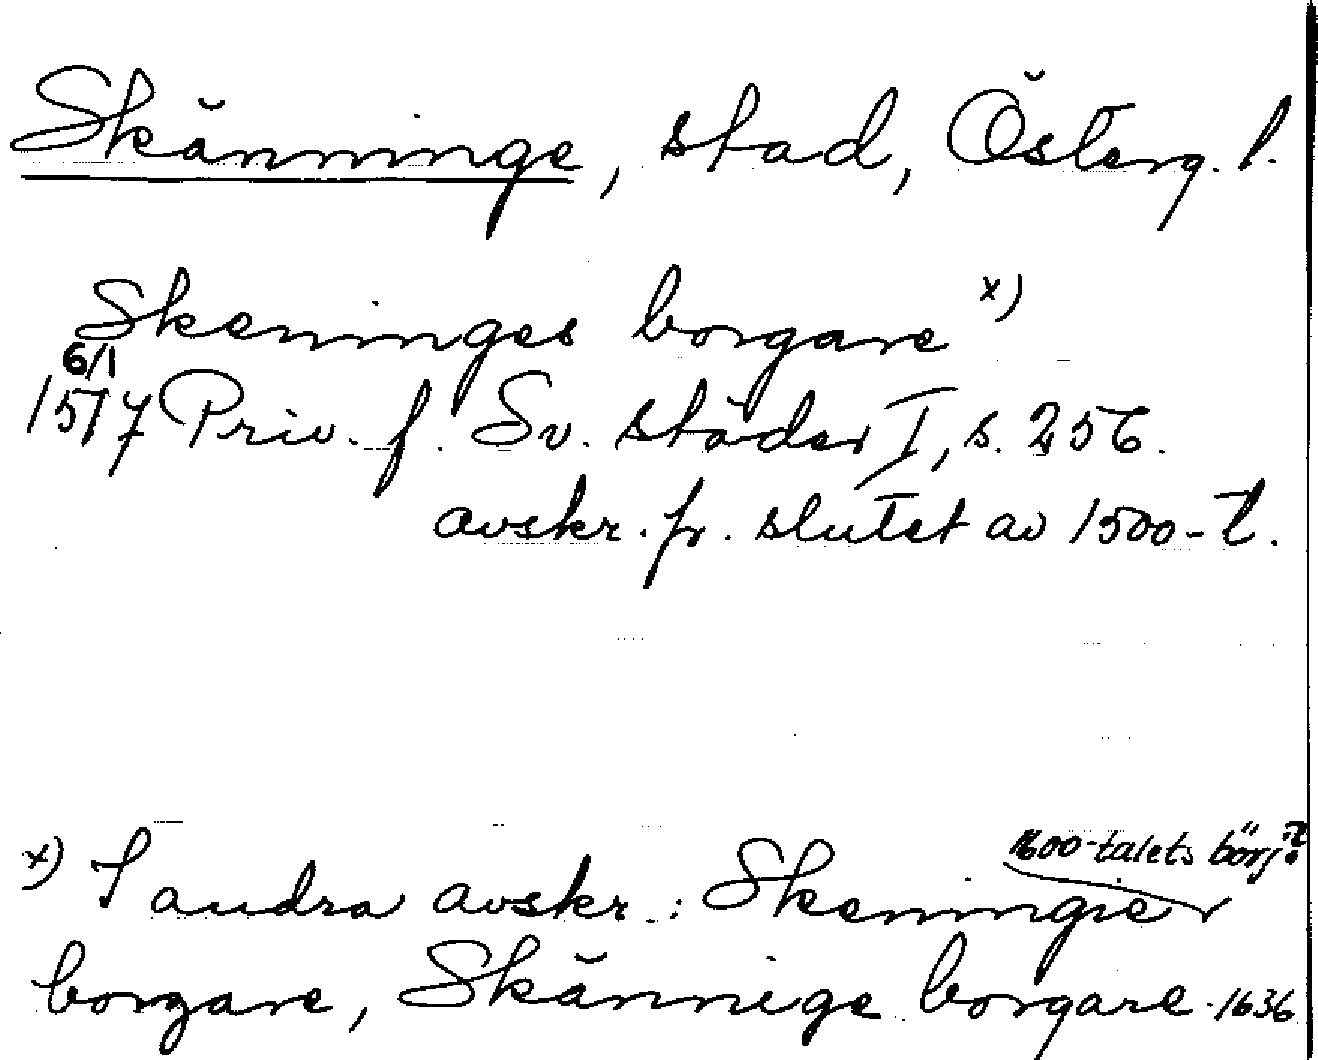 Skänninge, stad, Österg. l.
Skeninges borgare x)
6/1
1577 Priv. f. Sv. städer I, s. 256.
avskr. fr. slutet av 1500-t.
1600-talets börj.
x) I andra avskr.: Skeningie
borgare, Skännige borgare 1636